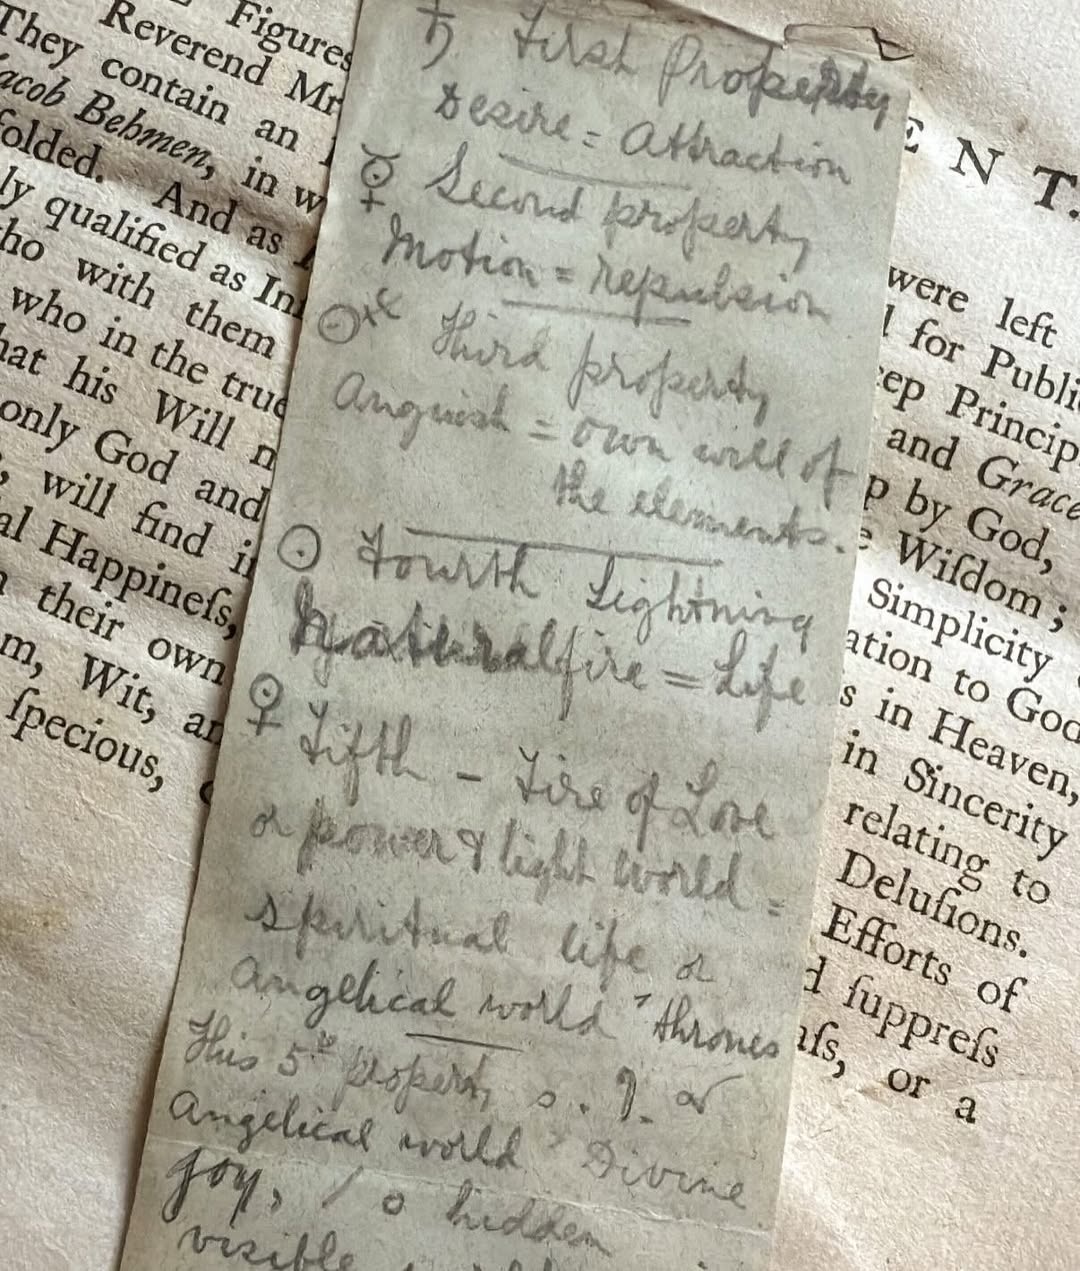 Figures
Reverend Mr
They contain an
acob Behmen, in w
folded. And as
ly qualified as Inſ
ho with them
who in the true
hat his Will n
only God and
, will find i
al Happineſs,
their own
m, Wit, an
ſpecious,
♄ First Property
Desire = Attraction
☿ Second property
Motion = repulsion
Third property
Anguish = own will of
the elements.
☉ Fourth Lightning
Natural fire = Life
♀ Fifth - Fire of Love
or power & light world =
spiritual life or
Angelical world thrones
This 5th property
Angelical world Divine
joy, hidden
visible
ENT.
were left
for Public
eep Princip
and Grace
p by God,
e Wiſdom;
Simplicity
ation to God
s in Heaven,
in Sincerity
relating to
Deluſions.
Efforts of
d ſuppreſs
aſs, or a